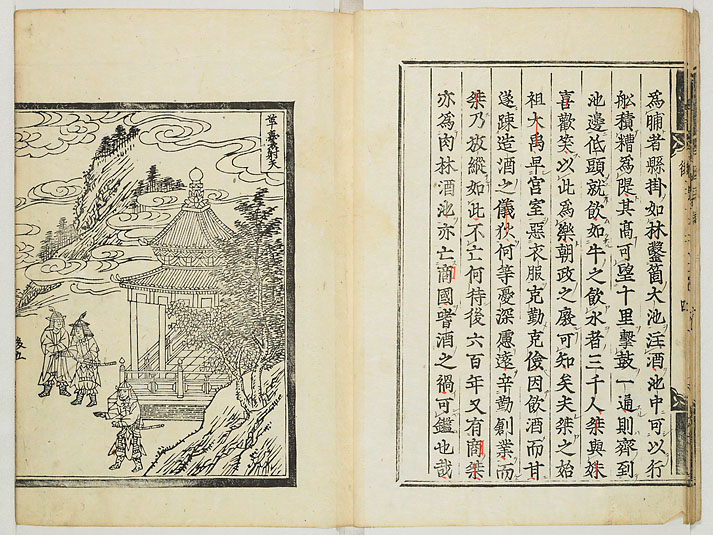 爲脯者縣掛如林鑿箇大池注酒池中可以行
舩積糟爲隄其高可望十里擊鼓一通則齊到
池邊低頭就飲如牛之飲水者三千人桀與妺
喜歡笑以此爲樂朝政之廢可知矣夫桀之始
祖大禹卑宮室惡衣服克勤克儉因飲酒而甘
遂踈造酒之儀狄何等憂深慮遠辛勤創業而
桀乃放縱如此不亡何待後六百年又有商桀
亦爲肉林酒池亦亡商國嗜酒之禍可鑑也哉
革囊射天